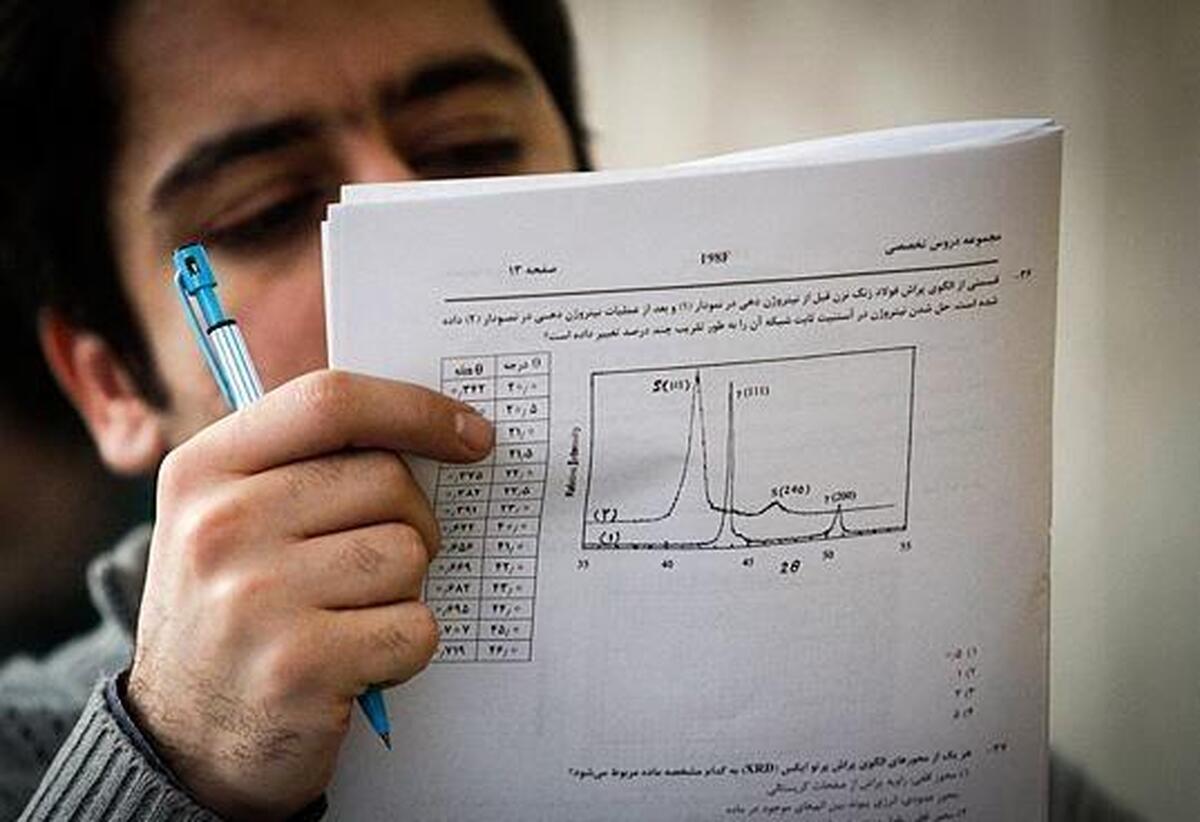 مجموعه دروس تخصصی
198F
صفحه ۱۳
۳۶- قسمتی از الگوی پراش فولاد زنگ نزن قبل از نیتروژن دهی در نمودار (۱) و بعد از عملیات نیتروژن دهی در نمودار (۲) داده
شده است. حل شدن نیتروژن در آستنیت ثابت شبکه آن را به طور تقریب چند درصد تغییر داده است؟
sin θ θ درجه
۰٫۳۴۲ ۲۰٫۰
۲۰٫۵
۲۱٫۰
۲۱٫۵
۰٫۳۷۵ ۲۲٫۰
۰٫۳۸۲ ۲۲٫۵
۰٫۳۹۱ ۲۳٫۰
۴۰٫۰
۰٫۶۵۶ ۴۱٫۰
۰٫۶۶۹ ۴۲٫۰
۰٫۶۸۲ ۴۳٫۰
۰٫۶۹۵ ۴۴٫۰
٫۷۰۷ ۴۵٫۰
٫۷۱۹ ۴۶٫۰
S(111)
γ(111)
S(200)
γ(200)
(۲)
(۱)
35 40 45 50 55
2θ
۱) ۰٫۵
۲) ۱
۳) ۲
۴) ۵
۳۷- هر یک از محورهای الگوی پراش پرتو ایکس (XRD) به کدام مشخصه ماده مربوط می‌شود؟
۱) محور افقی: زاویه پراش از صفحات کریستالی
محور عمودی: انرژی پیوند بین اتمهای موجود در ماده